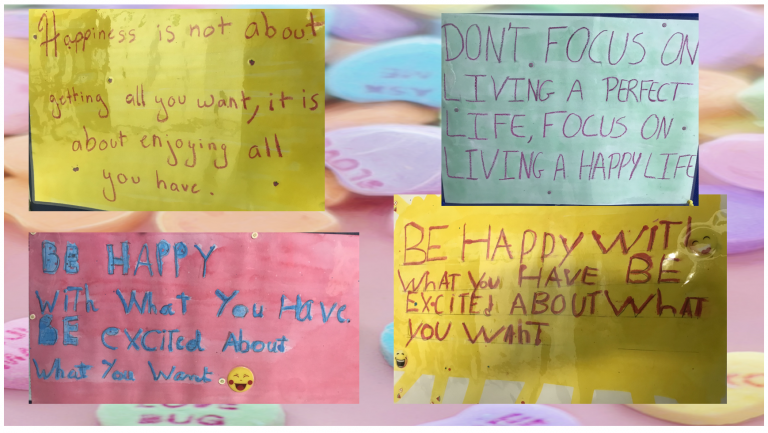 Happiness is not about
getting all you want, it is
about enjoying all
you have.
DON'T FOCUS ON
LIVING A PERFECT
LIFE, FOCUS ON
LIVING A HAPPY LIFE
BE HAPPY
With What You Have.
BE excited About
What You Want
BE HAPPY WITH
WhAT You HAVE BE
EXCITEd ABOUT WhAT
YOU WANT
LOVE
BUG